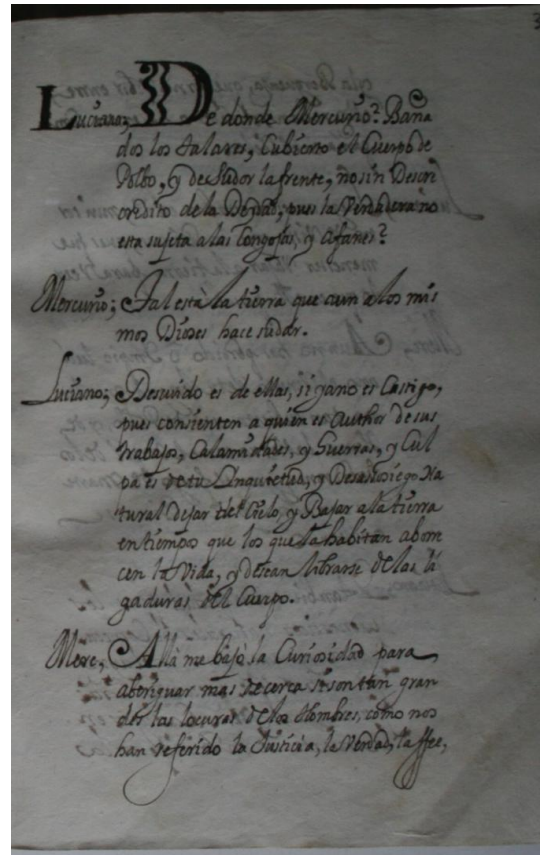 Luciano; De donde Mercurio? Baña
dos los talares, Cubierto el Cuerpo de
Polbo, y de sudor la frente, no sin Descre
credito de la Deydad, pues la Verdadera no
esta sujeta a las Congojas, y Afanes?
Mercurio; Tal està la tierra que aun a los mis
mos Dioses hace sudar.
Luciano; Descuido es de ellas, si ya no es Castigo,
pues consienten a quien es Author de sus
trabajos, Calamidades, y Guerras, y Cul
pa es de tu Inquietud, y Desasosiego Na
tural dejar el Cielo, y Bajar a la tierra
en tiempo que los que la habitan abor
cen la Vida, y desean librarse de las li
gaduras del Cuerpo.
Merc, Allà me bajò la Curiosidad para
aberiguar mas de cerca si son tan gran
des las locuras de los Hombres, como nos
han referido la Justicia, la Verdad, la ffee,